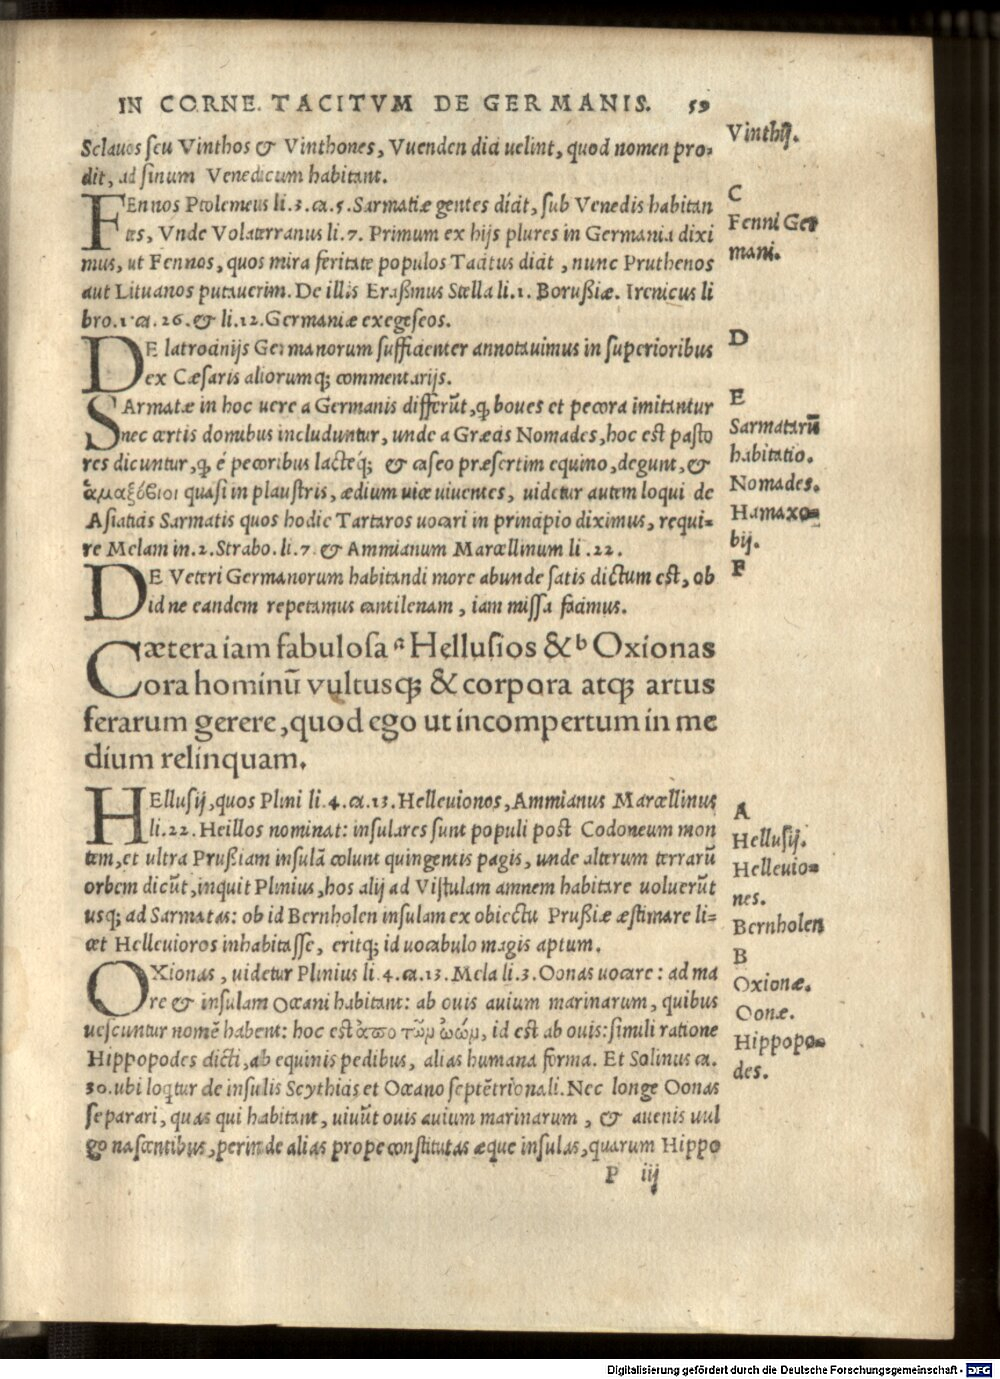 IN CORNE. TACITVM DE GERMANIS. 59
Sclauos seu Vinthos & Vinthones, Vuenden dici uelint, quod nomen pro-
dit, ad sinum Venedicum habitant.
Vinthij.
FEnnos Ptolemeus li.3.ca.5.Sarmatiæ gentes dicit, sub Venedis habitan
tes, Vnde Volaterranus li.7. Primum ex hijs plures in Germania dixi
mus, ut Fennos, quos mira feritate populos Tacitus dicit, nunc Pruthenos
aut Lituanos putauerim. De illis Eraßmus Stella li.1. Borußiæ. Irenicus li
bro.1.ca.26.& li.12.Germaniæ exegeseos.
C
Fenni Ger
mani.
DE latrocinijs Germanorum sufficienter annotauimus in superioribus
ex Cæsaris aliorumq; commentarijs.
D
SArmatæ in hoc uere a Germanis differũt, q, boues et pecora imitantur
nec certis domibus includuntur, unde a Græcis Nomades, hoc est pasto
res dicuntur, q, é pecoribus lacteq́; & caseo præsertim equino, degunt, &
ἁμαξόβιοι quasi in plaustris, ædium uice uiuentes, uidetur autem loqui de
Asiaticis Sarmatis quos hodie Tartaros uocari in principio diximus, requi-
re Melam in.2. Strabo. li.7 & Ammianum Marcellinum li.22.
E
Sarmatarũ
habitatio.
Nomades.
Hamaxo-
bij.
DE Veteri Germanorum habitandi more abunde satis dictum est, ob
id ne eandem repetamus cantilenam, iam missa facimus.
F
Cætera iam fabulosa a Hellusios & b Oxionas
ora hominũ vultusq; & corpora atq; artus
ferarum gerere, quod ego ut incompertum in me
dium relinquam.
HEllusij, quos Plini li.4.ca.13.Helleuiones, Ammianus Marcellinus
li.22. Heillos nominat: insulares sunt populi post Codoneum mon
tem, et ultra Prußiam insulã colunt quingentis pagis, unde alterum terrarũ
orbem dicũt, inquit Plinius, hos alij ad Vistulam amnem habitare uoluerũt
usq; ad Sarmatas: ob id Bernholen insulam ex obiectu Prußiæ æstimare li-
cet Helleuioros inhabitasse, eritq; id uocabulo magis aptum.
A
Hellusij.
Helleuio-
nes.
Bernholen
OXionas, uidetur Plinius li.4.ca.13. Mela li.3. Oonas uocare: ad ma
re & insulam Oceani habitant: ab ouis auium marinarum, quibus
uescuntur nomẽ habent: hoc est ἀπο τῶμ ὠώμ, id est ab ouis: simili ratione
Hippopodes dicti, ab equinis pedibus, alias humana forma. Et Solinus ca.
30.ubi loqtur de insulis Scythicis et Oceano septẽtrionali. Nec longe Oonas
separari, quas qui habitant, uiuũt ouis auium marinarum, & auenis uul
go nascentibus, perinde alias prope constitutas æque insulas, quarum Hippo
B
Oxionæ.
Oonæ.
Hippopo-
des.
P iij
Digitalisierung gefördert durch die Deutsche Forschungsgemeinschaft - DFG